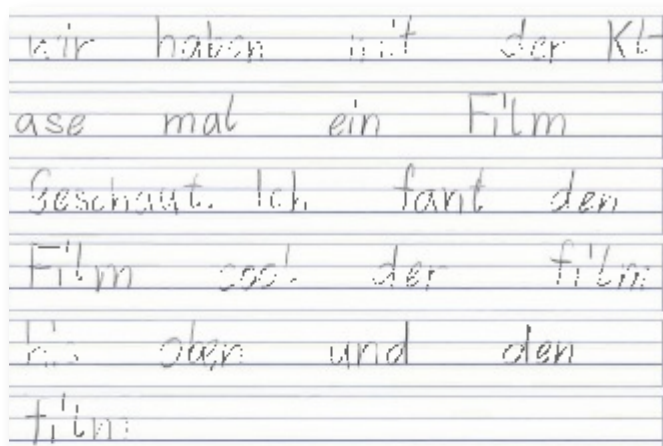 wir haben mit der Kl-
ase mal ein Film
Geschaut. Ich fant den
Film cool der film
his oben und den
film